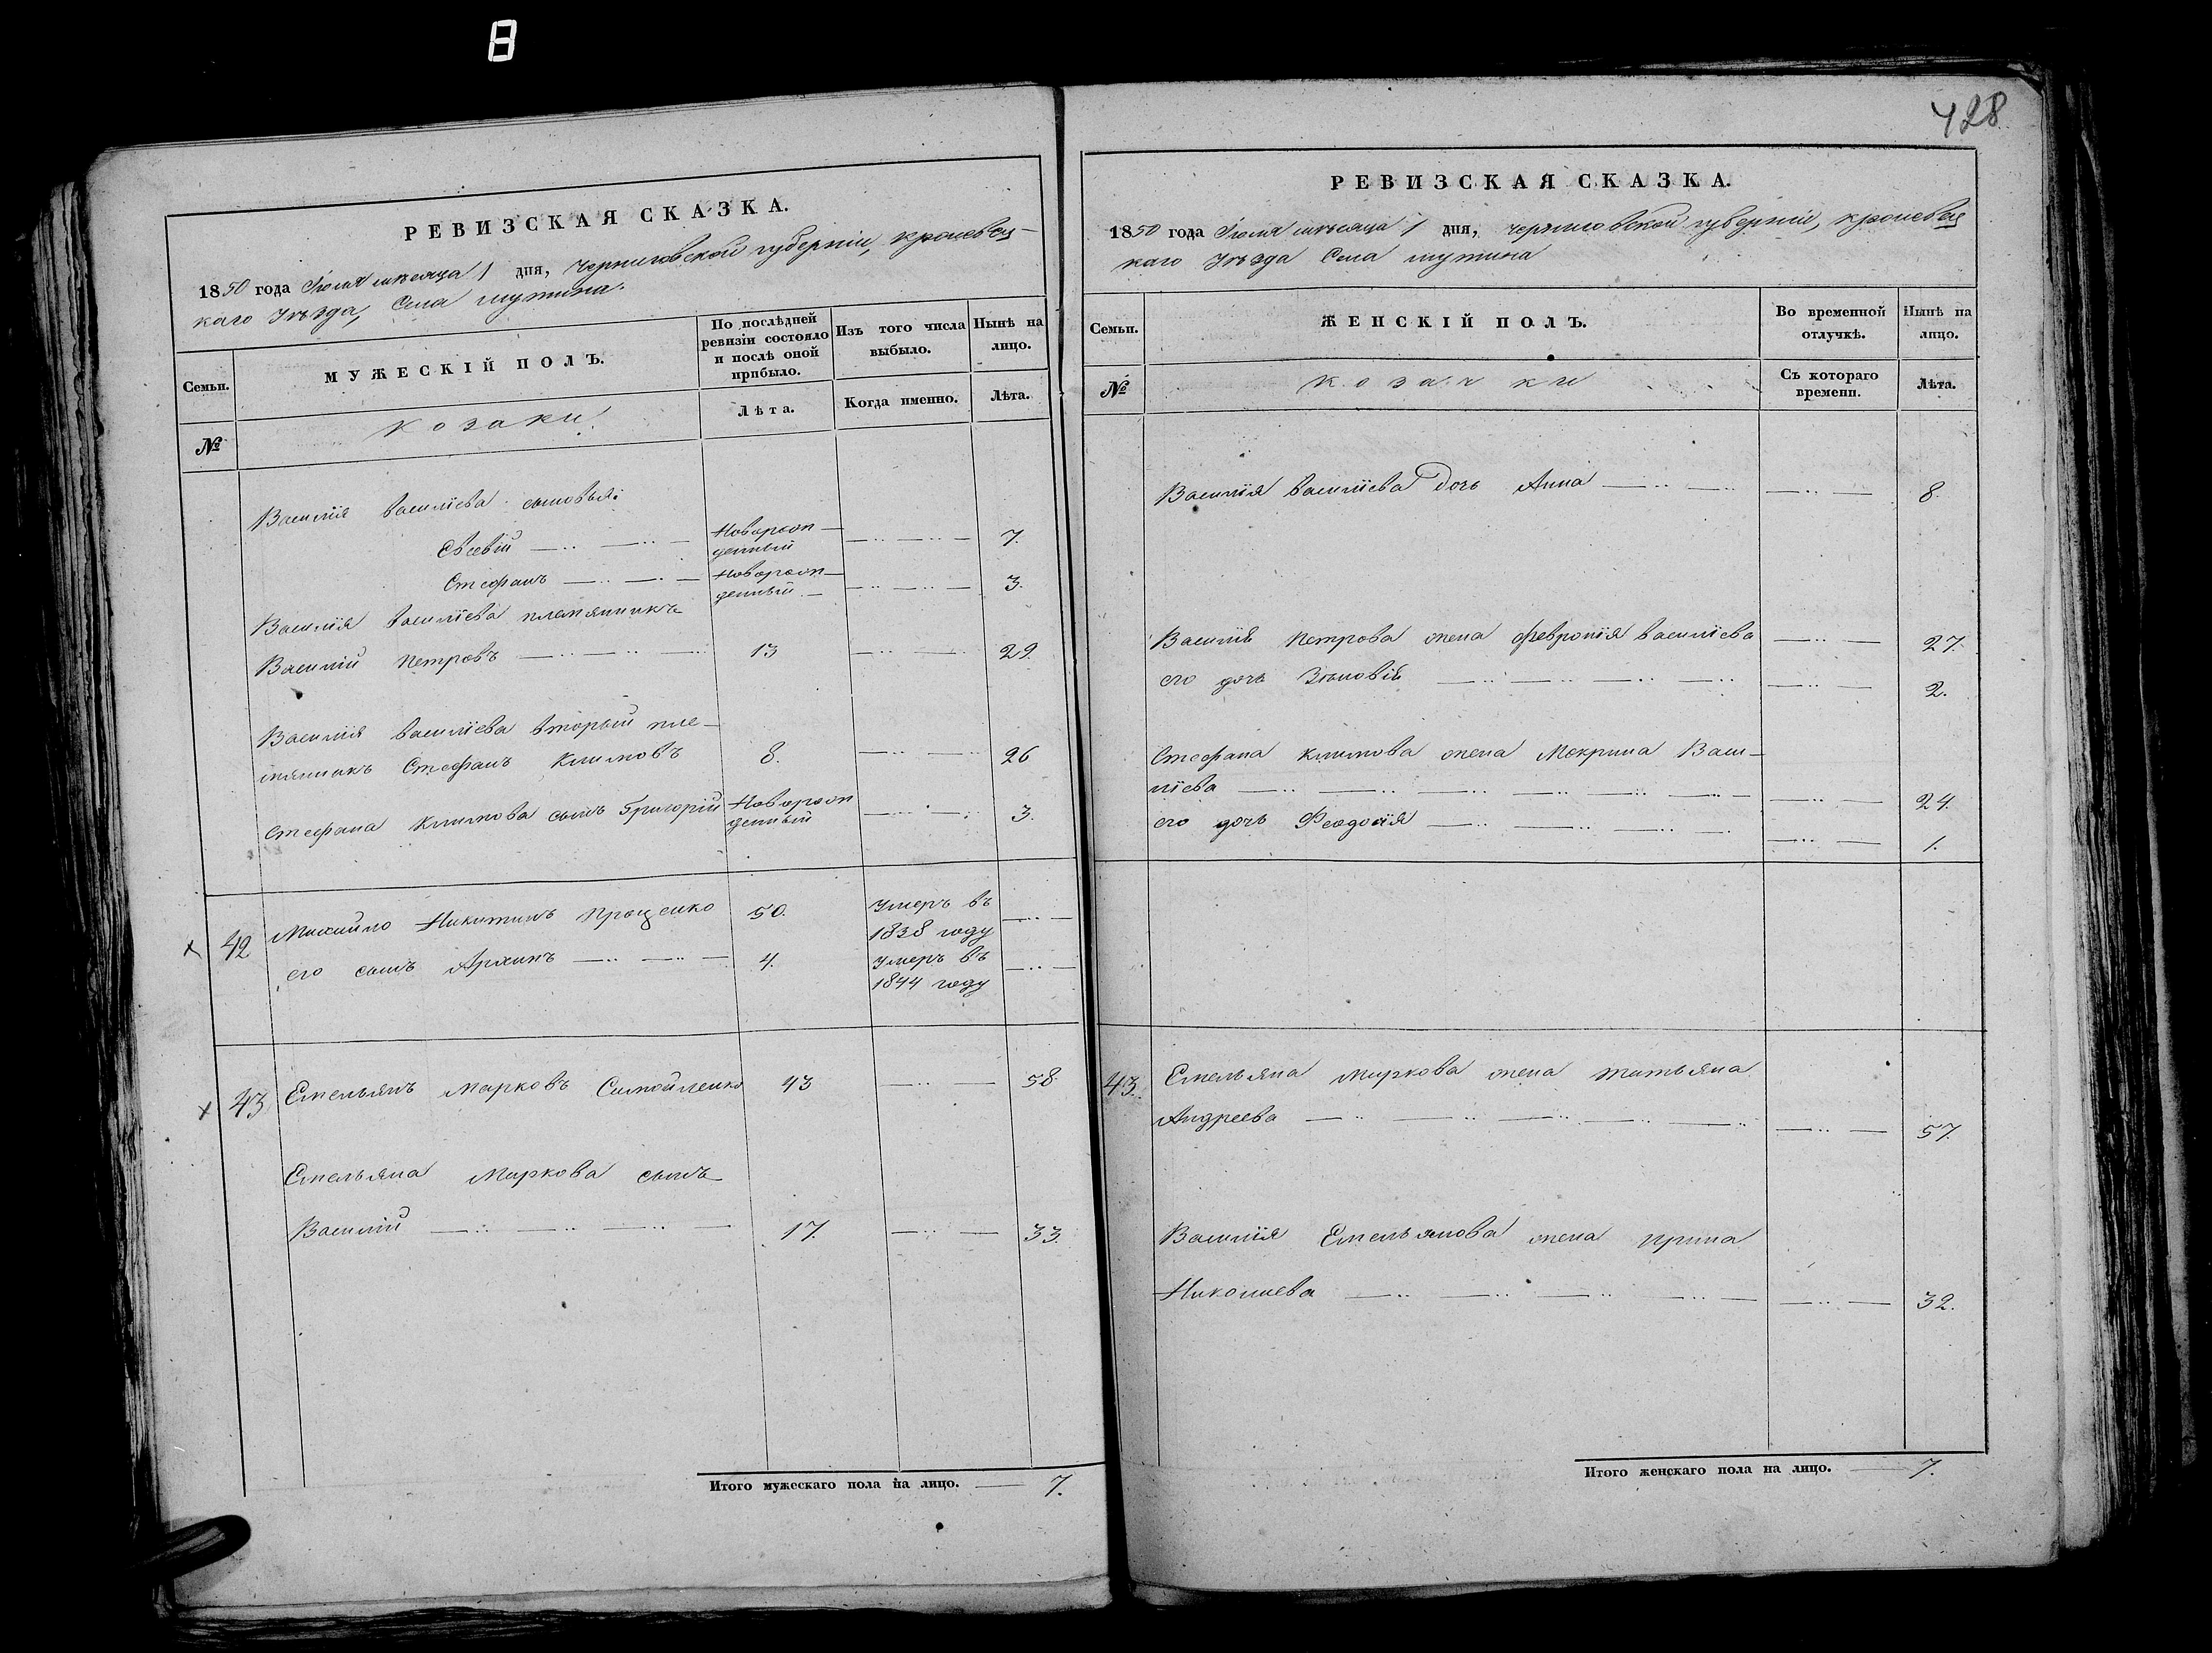 8
428
РЕВИЗСКАЯ СКАЗКА.
1850 года Іюля мѣсяца 1 дня, Черниговской губерніи, Кролевец-
каго Уѣзда, Села Мутина.
Семьи.
МУЖЕСКІЙ ПОЛЪ.
По послѣдней
ревизіи состояло
и послѣ оной
прибыло.
Изъ того числа
выбыло.
Нынѣ на
лицо.
№
Козаки
Лѣта.
Когда именно.
Лѣта.
Василія Василіева сыновья:
Евсевій — Новорож-
денный — 7.
Стефанъ — Новорож-
денный — 3.
Василія Василіева племянникъ
Василій Петровъ — 13 — 29.
Василія Василіева вторый пле-
мянникъ Стефанъ Климовъ 8. — 26
Стефана Климова сынъ Григорій Новорож
денный — 3.
х 42 Михайло Никитинъ Проценко 50. Умеръ въ
1838 году
его сынъ Архипъ — 4. Умеръ въ
1844 году
х 43 Емельянъ Марковъ Самойленко 43 — 58.
Емельяна Маркова сынъ
Василій — 17. — 33.
Итого мужескаго пола на лицо. — 7.
РЕВИЗСКАЯ СКАЗКА.
1850 года Іюля мѣсяца 1 дня, Черниговской губерніи, Кролевец
каго Уѣзда Села Мутина
Семьи.
ЖЕНСКІЙ ПОЛЪ.
Во временной
отлучкѣ.
Нынѣ на
лицо.
№
Козачки
Съ котораго
времени.
Лѣта.
Василія Василіева дочь Анна — 8.
Василія Петрова жена Февронія Василіева — 27.
его дочь Зѣновія — 2.
Стефана Климова жена Мокрина Васи-
ліева — 24.
его дочь Феодосія — 1.
43. Емельяна Маркова жена Татьяна
Андреева — 57.
Василія Емельянова жена Ирина
Николаева — 32.
Итого женскаго пола на лицо. — 7.